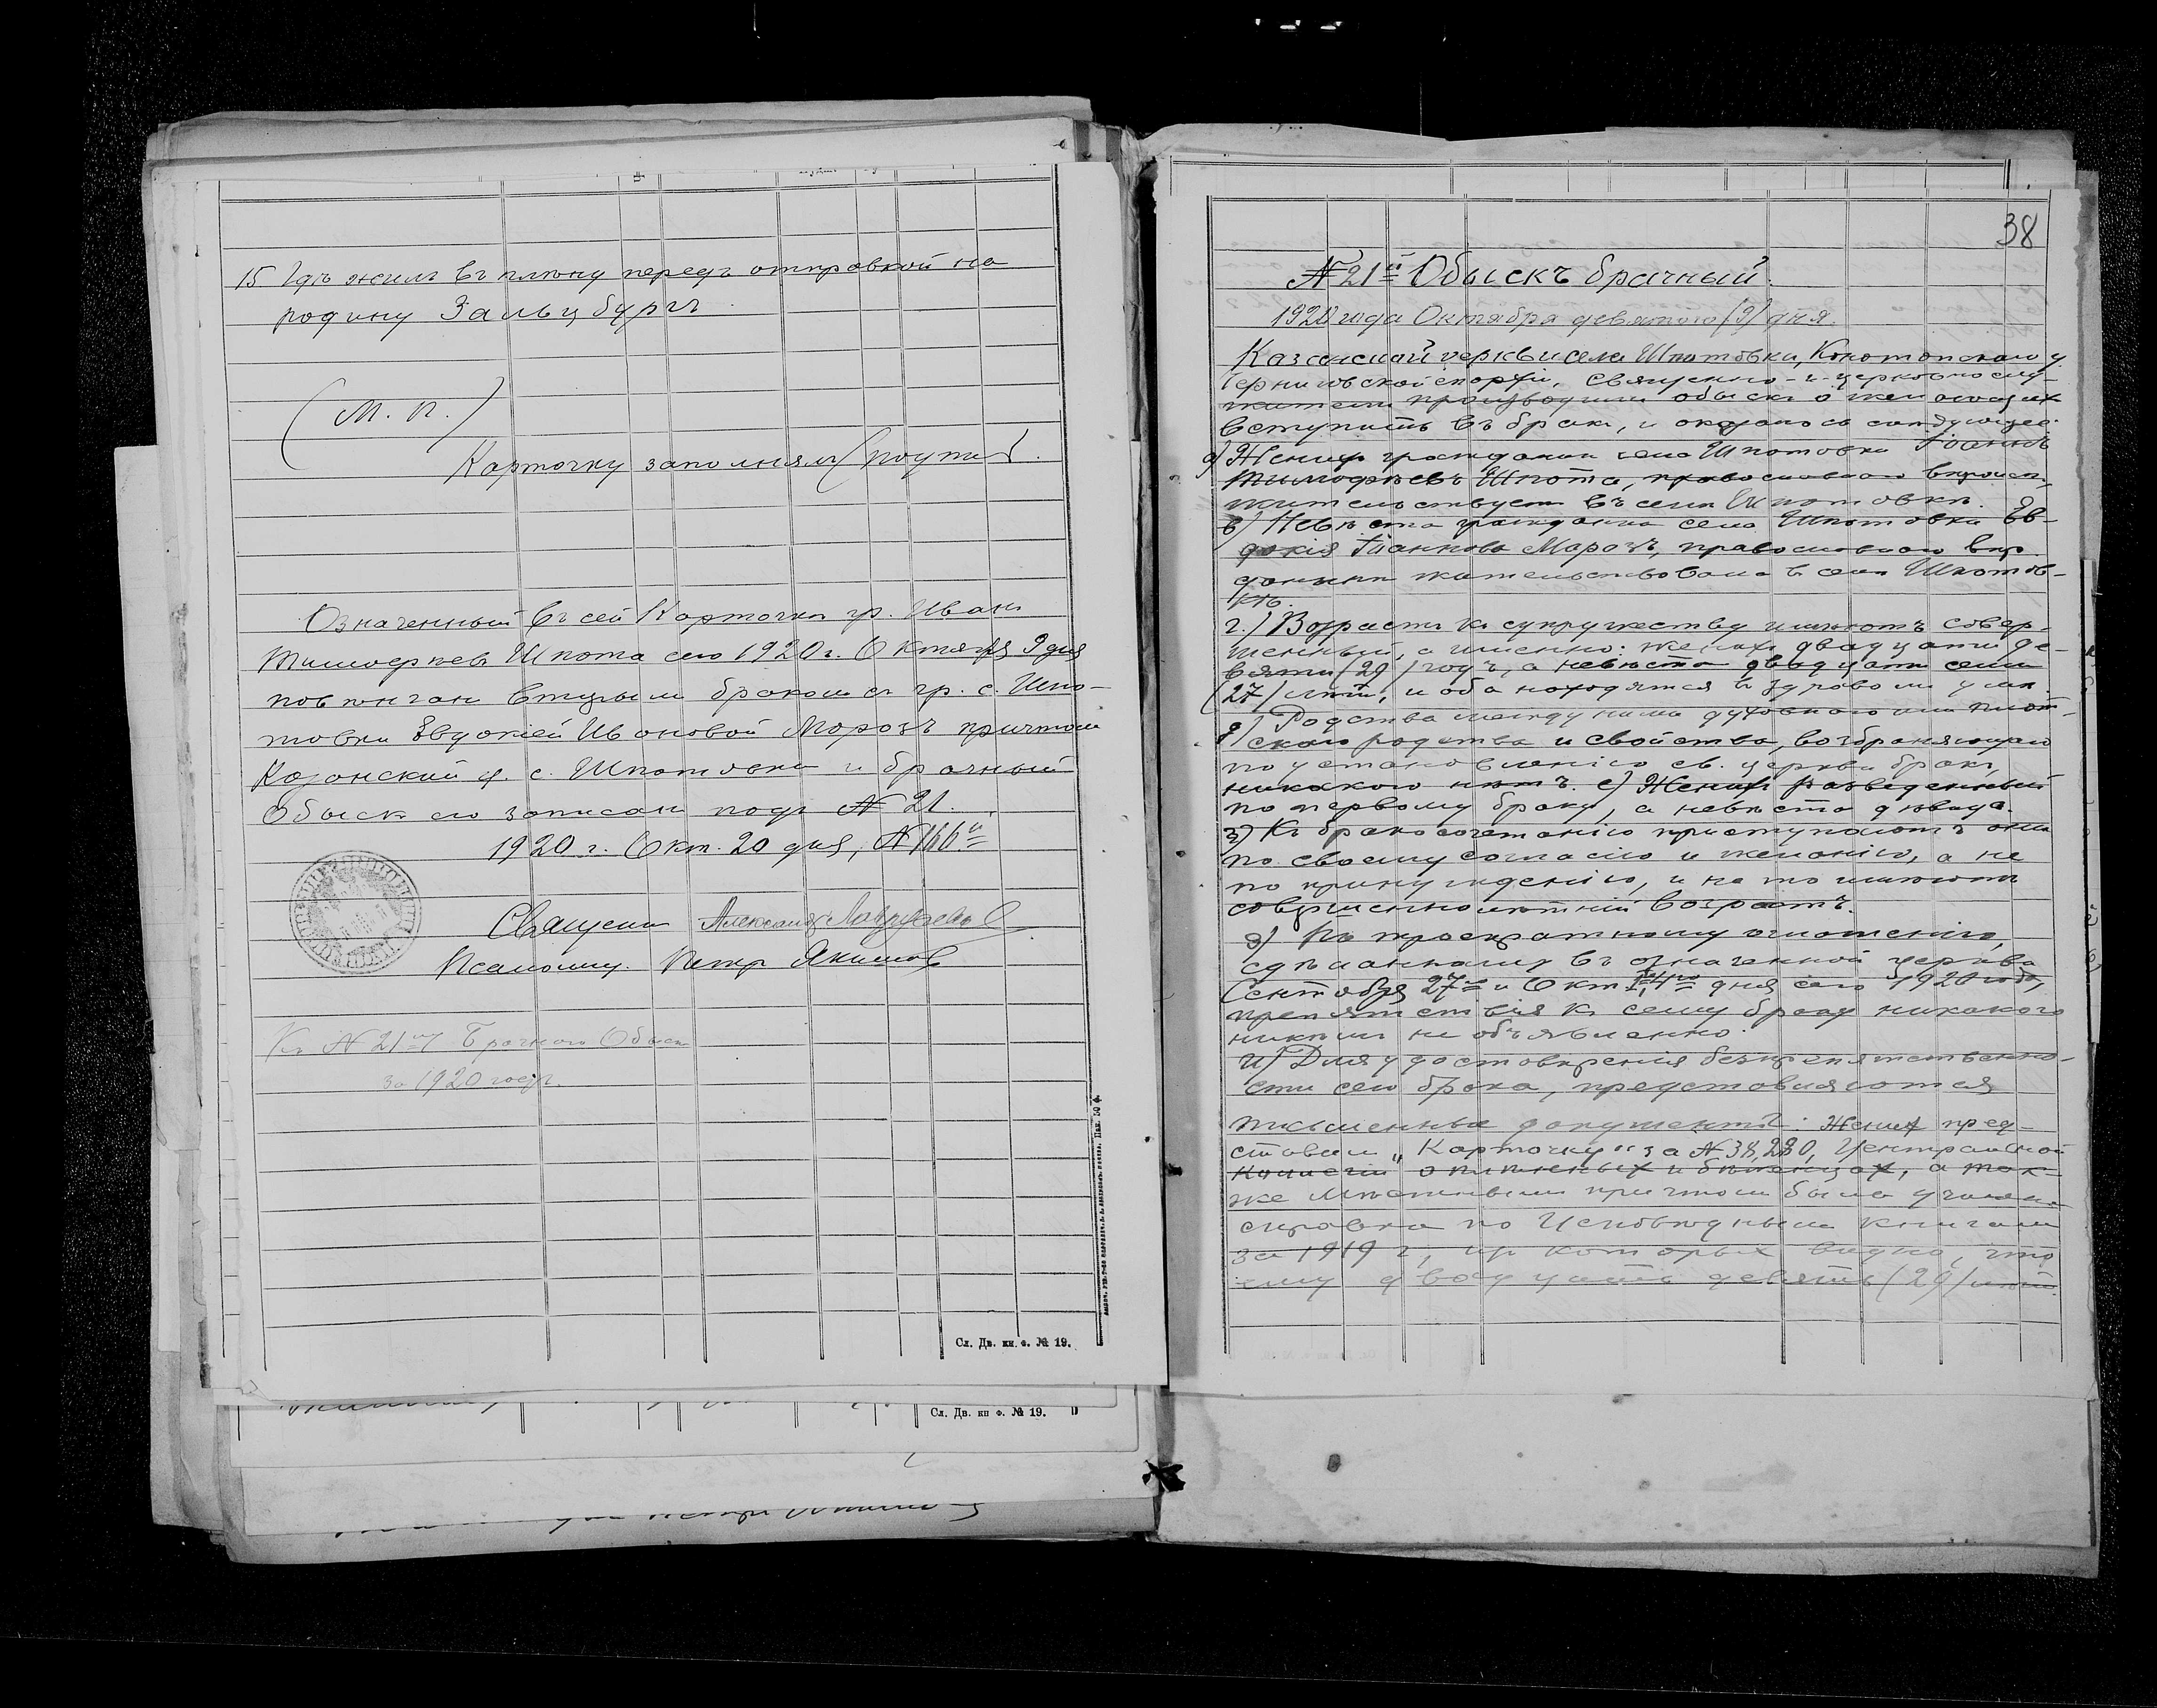 15 Гдѣ жилъ въ плѣну передъ отправкой на
родину Зальцбургъ.
(М. П.)
Карточку заполнялъ
Означенный въ сей Карточкѣ гр. Иванъ
Тимофѣевъ Шпота сего 1920 г. Октября 9 дня
повѣнчан вторым бракомъ съ гр. с. Шпо-
товки Евдокіей Ивановой Морозъ причтом
Казанской ц. с. Шпотовки и брачный
Обыскъ его записан подъ № 21.
1920 г. Окт. 20 дня, № 166й
Священ. Александръ
Псаломщ. Петръ Якимов
Къ № 21му Брачнаго Обыска
за 1920 годъ.
Сл. Дв. кн. ф. № 19.
Сл. Дв. кн ф. № 19.
38
№ 21й Обыскъ брачный.
1920 года Октября девятого (9) дня.
Казанской церкви села Шпотовки, Конотопскаго у.
Черниговской епархіи, священно- и церковнослу-
жители производили обыскъ о желающихъ
вступить въ бракъ, и оказалось следующее:
а) Женихъ гражданин села Шпотовки Іоаннъ
Тимофѣевъ Шпота, православнаго вѣроисп.,
жительствует въ селѣ Шпотовкѣ.
в) Невѣста гражданка села Шпотовки Ев-
докія Іоаннова Морозъ, православнаго вѣр.
жительствовала в селѣ Шпотов-
кѣ.
г.) Возрастъ къ супружеству имѣютъ совер-
шенный, а именно: женихъ двадцати де-
вяти (29) годъ, а невѣста двадцати семи
(27) лѣтъ, и оба находятся в здравом умѣ.
д) Родства между ними духовнаго или плот-
скаго родства и свойства, возбраняющаго
по установленію св. церкви бракъ,
никакого нѣтъ. е) Женихъ разведенный
по первому браку, а невѣста дѣвица.
з) Къ бракосочетанію приступаютъ они
по своему согласію и желанію, а не
по принужденію, и на то имѣютъ
совершеннолѣтній возрастъ.
По троекратному оглашенію,
сдѣланному въ означенной церкви
Сентября 27го и Окт 1, 4го дня сего 1920 года,
препятствія къ сему браку никакого
никѣмъ не объявленно.
и) Для удостовѣренія безпрепятственно-
сти сего брака, представляются
письменные документы: Жених пред-
ставил „Карточку" за № 38,280, Центральной
Колегіи о плѣнныхъ и бѣженцахъ, а так-
же мѣстнымъ причтом была учинен.
справка по Исповѣднымъ книгам
за 1919 г, из которых видно, что
ему двадцать девять (29) лѣтъ.